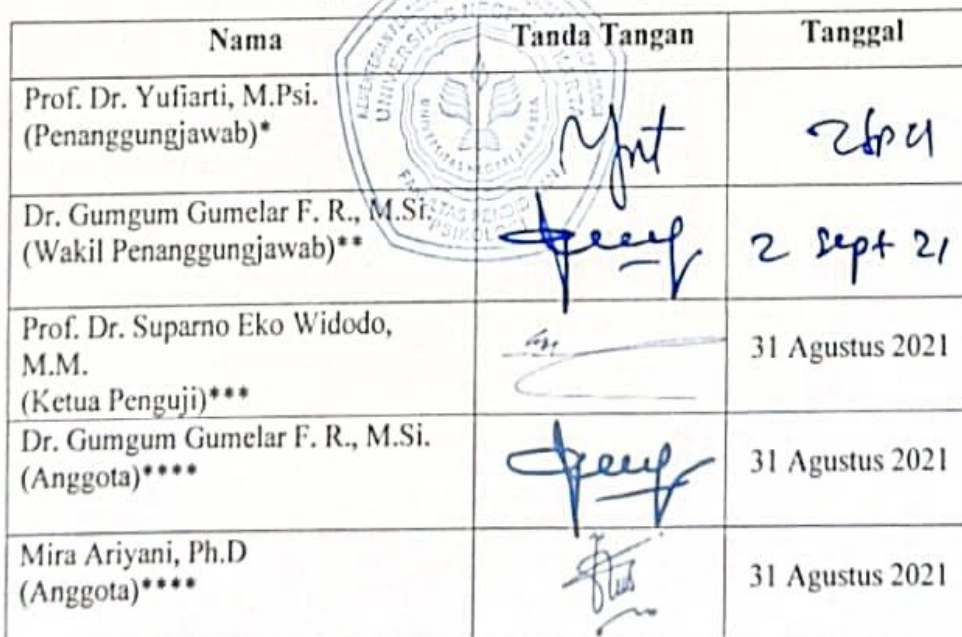 Nama Tanda Tangan Tanggal
Prof. Dr. Yufiarti, M.Psi.
(Penanggungjawab)*
Dr. Gumgum Gumelar F. R., M.Si.
(Wakil Penanggungjawab)** 2 Sept 21
Prof. Dr. Suparno Eko Widodo,
M.M. 31 Agustus 2021
(Ketua Penguji)***
Dr. Gumgum Gumelar F. R., M.Si.
(Anggota)**** 31 Agustus 2021
Mira Ariyani, Ph.D
(Anggota)**** 31 Agustus 2021
UNIVERSITAS NEGERI
PSIKOLOGI